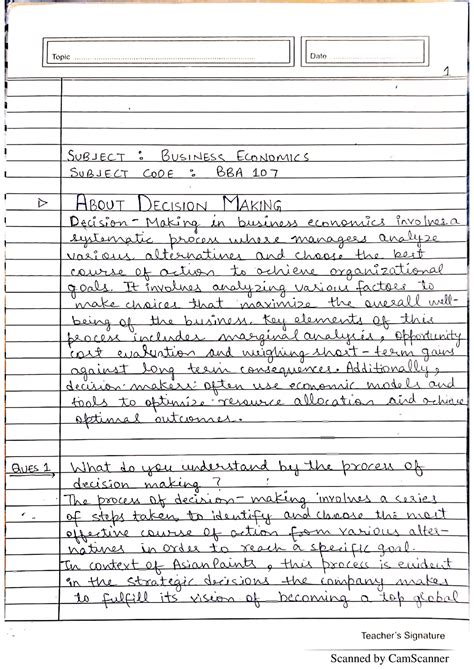 Topic
Date
1
SUBJECT : BUSINESS ECONOMICS
SUBJECT CODE : BBA 107
▷ ABOUT DECISION MAKING
Decision-Making in business economics involves a
systematic process where managers analyze
various alternatives and choose the best
course of action to achieve organizational
goals. It involves analyzing various factors to
make choices that maximize the overall well-
being of the business. Key elements of this
process includes marginal analysis, opportunity
cost evaluation and weighing short-term gains
against long term consequences. Additionally,
decision-makers often use economic models and
tools to optimize resource allocation and achieve
optimal outcomes.
QUES 1 What do you understand by the process of
decision making ?
The process of decision-making involves a series
of steps taken to identify and choose the most
effective course of action from various alter-
natives in order to reach a specific goal.
In context of Asian Paints, this process is evident
in the strategic decisions the company makes
to fulfill its vision of becoming a top global
Teacher's Signature
Scanned by CamScanner